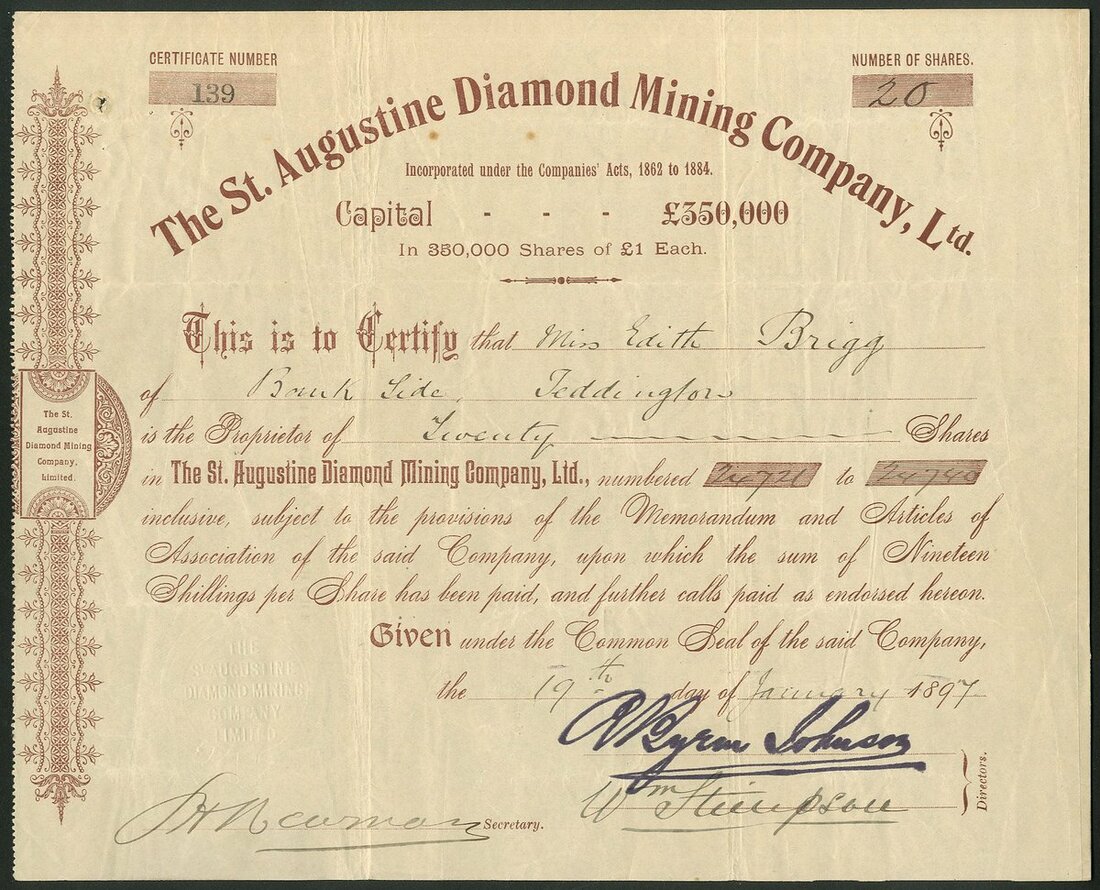 CERTIFICATE NUMBER
139
NUMBER OF SHARES.
20
The St. Augustine Diamond Mining Company, Ltd.
Incorporated under the Companies' Acts, 1862 to 1884.
Capital - - - £350,000
In 350,000 Shares of £1 Each.
This is to Certify that Miss Edith Brigg
of Bank Side, Teddington
is the Proprietor of Twenty Shares
in The St. Augustine Diamond Mining Company, Ltd., numbered 24721 to 24740
inclusive, subject to the provisions of the Memorandum and Articles of
Association of the said Company, upon which the sum of Nineteen
Shillings per Share has been paid, and further calls paid as endorsed hereon.
Given under the Common Seal of the said Company,
the 19th day of January 1897
The St.
Augustine
Diamond Mining
Company,
Limited.
THE
ST AUGUSTINE
DIAMOND MINING
COMPANY
LIMITED
Byron Johnson
Wm Stimpson
Directors.
Newman Secretary.